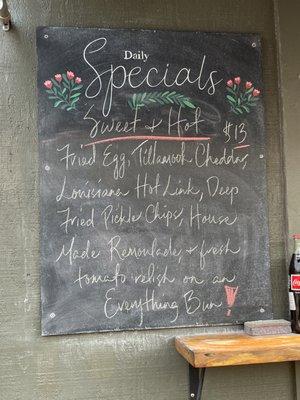 Daily
Specials
Sweet + Hot $13
Fried Egg, Tillamook Cheddar,
Louisiana Hot Link, Deep
Fried Pickle Chips, House
Made Remoulade, + fresh
tomato relish on an
Everything Bun!